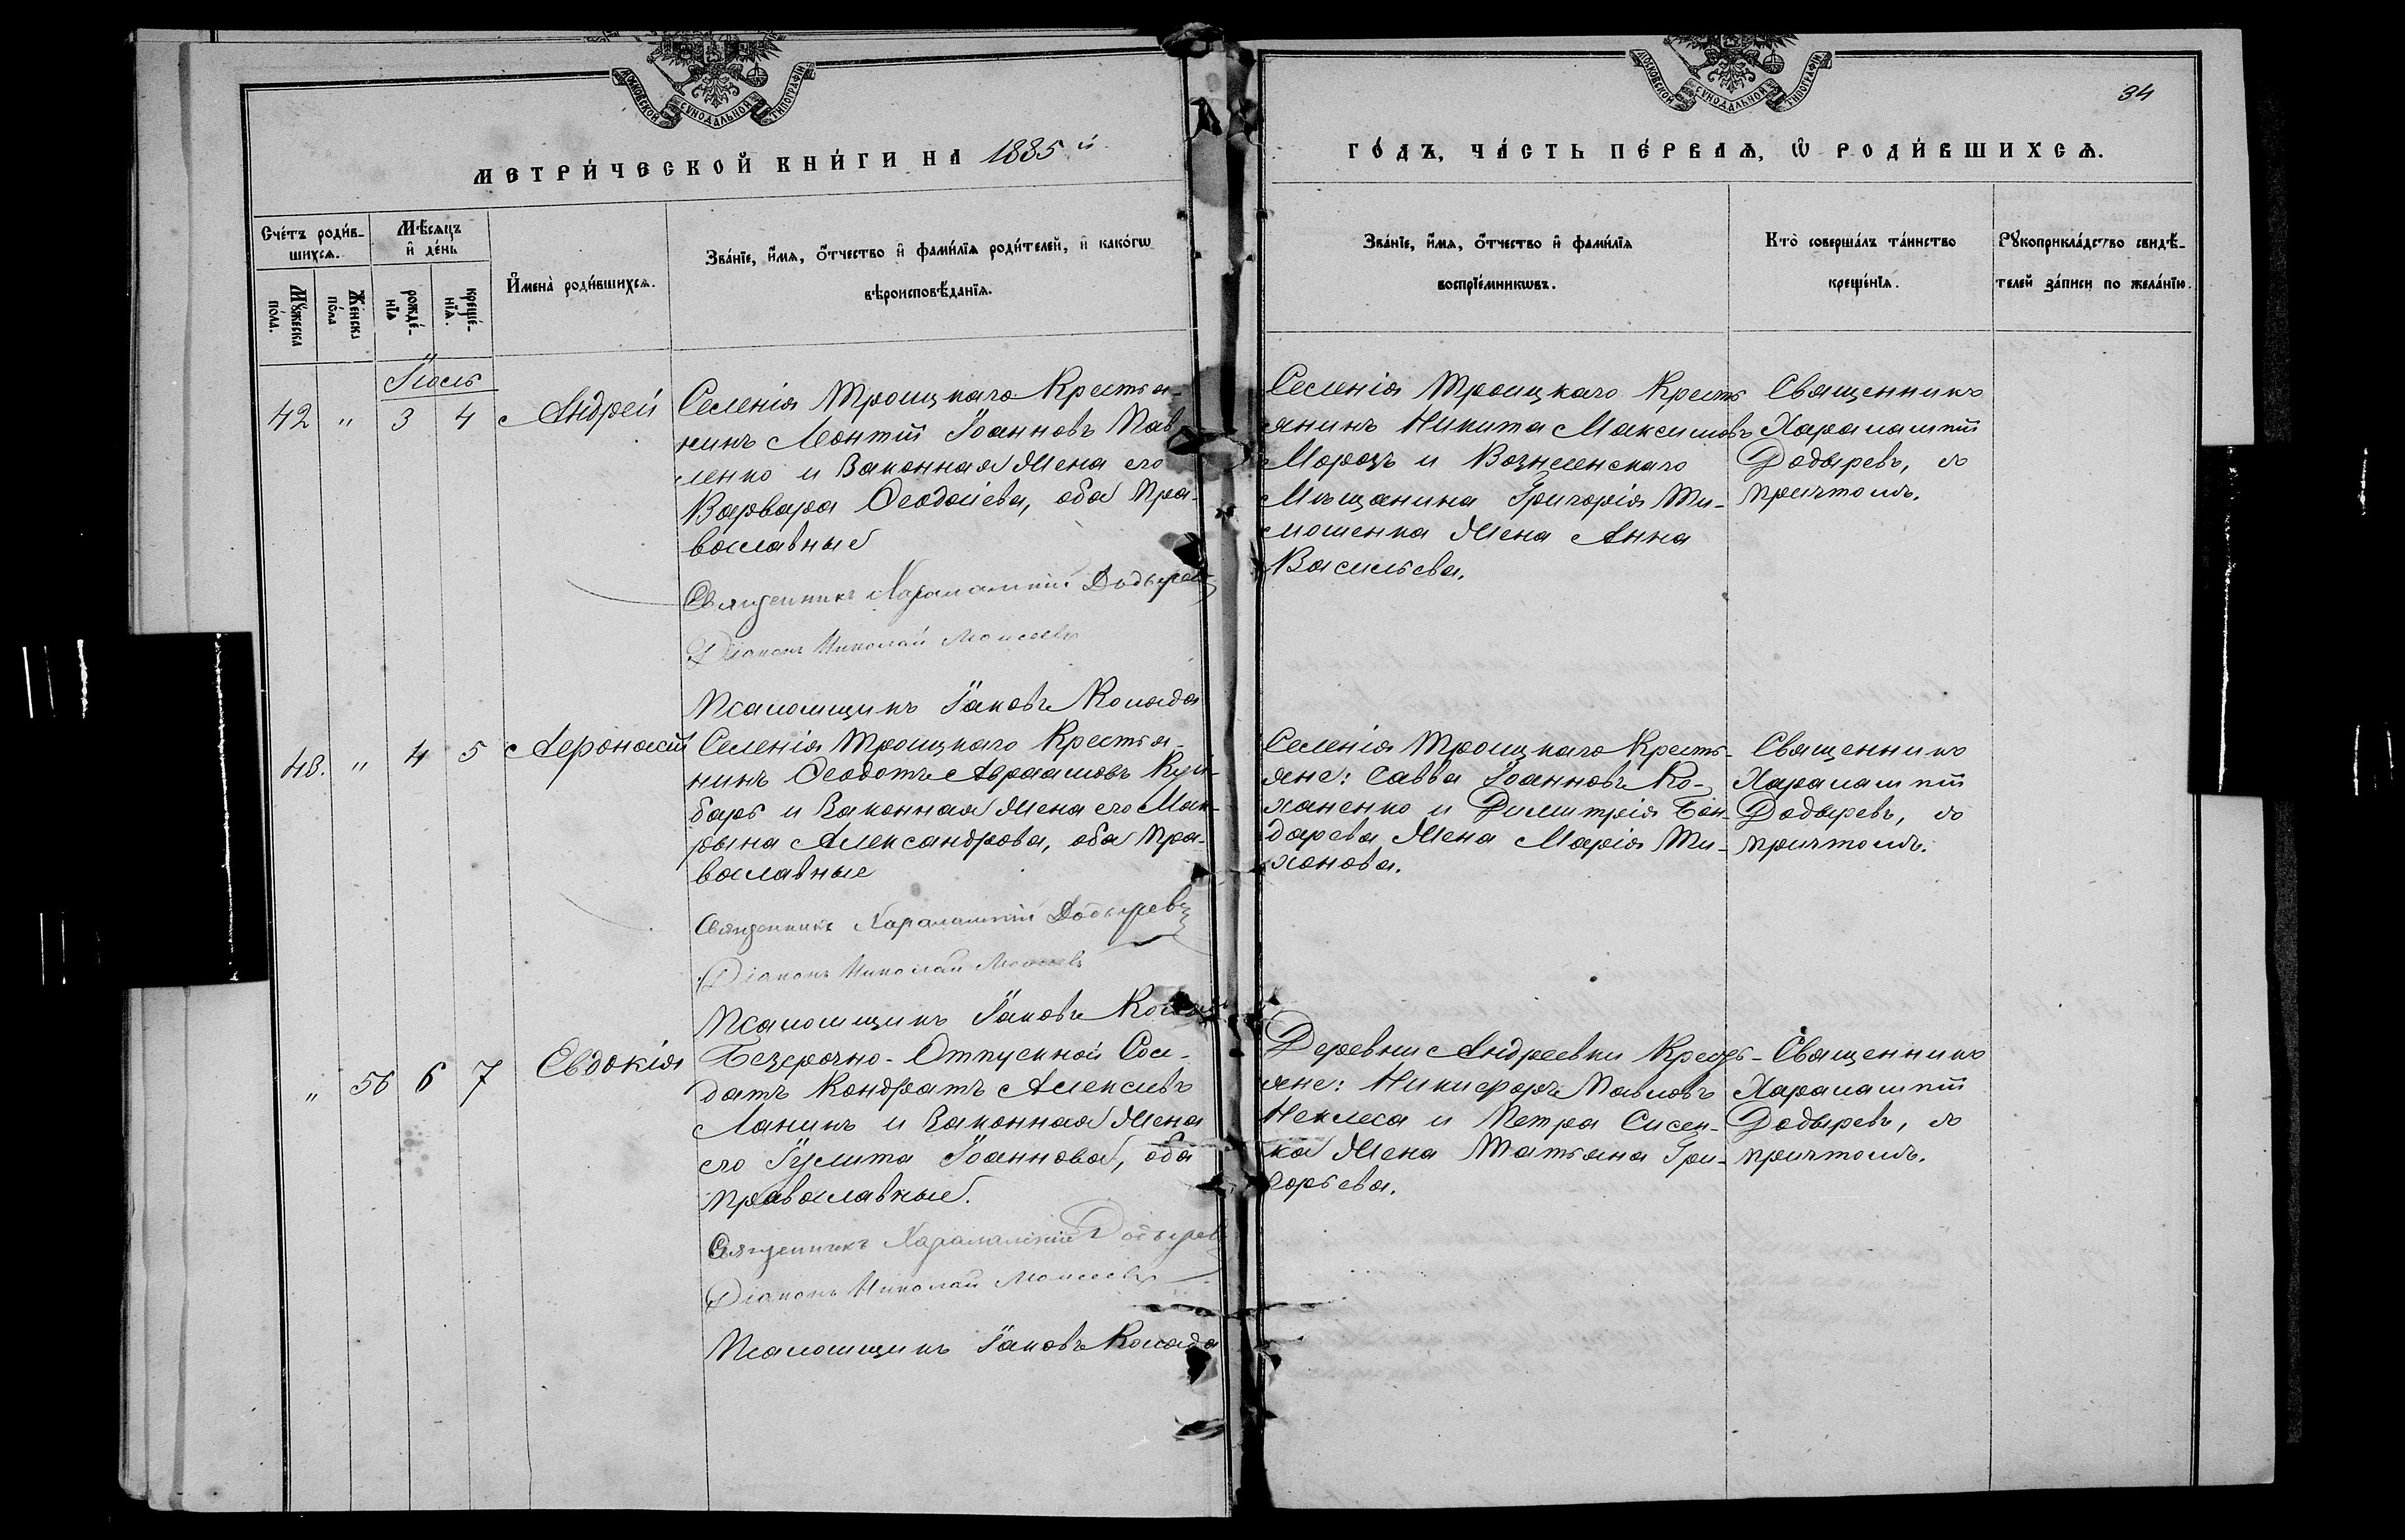 МОСКОВСКОЙ СѴНОДАЛЬНОЙ ТИПОГРАФІИ
МОСКОВСКОЙ СѴНОДАЛЬНОЙ ТИПОГРАФІИ
34
МЕТРИ́ЧЕСКОЙ КНИ́ГИ НА 1885 й
ГО́ДЪ, ЧА́СТЬ ПЕ́РВАѦ, Ѡ҆ РОДИ́ВШИХСѦ.
Сче́тъ роди́в-
шихсѧ.
Мꙋ́жеска
по́ла.
Же́нска
по́ла
Мѣ́сѧцъ
и҆ де́нь
рожде́-
нїѧ
креще́-
нїѧ.
И҆мена̀ роди́вшихсѧ.
Зва́нїе, и҆́мѧ, о҆́тчество и҆ фами́лїѧ роди́телей, и҆ како́гѡ
вѣроисповѣ́данїѧ.
Зва́нїе, и҆́мѧ, о҆́тчество и҆ фами́лїѧ
воспрїе́мникѡвъ.
Кто̀ соверша́лъ та́инство
креще́нїѧ.
Рꙋкоприкла́дство свидѣ́-
телей за́писи по жела́нїю.
Іюль
42 " 3 4 Андрей
Селенія Троицкаго Крестья-
нинъ Леонтій Іоанновъ Пав-
ленко и Законная Жена его
Варвара Ѳеодосіева, оба Пра-
вославные
Священникъ Харалампій Додыревъ
Діаконъ Николай Моисеевъ
Псаломщикъ Іаковъ Коляда
Селенія Троицкаго Кресть
янинъ Никита Максимовъ
Морозъ и Вознесенскаго
Мѣщанина Григорія Ти-
мошенка Жена Анна
Васильева.
Священникъ
Харалампій
Додыревъ, съ
причтомъ.
43. " 4 5 Аѳонасій
Селенія Троицкаго Крестья-
нинъ Ѳеодотъ Авраамовъ Кум-
баръ и Законная Жена его Мак-
рына Александрова, оба Пра-
вославные
Священникъ Харалампій Додыревъ
Діаконъ Николай Моисеевъ
Псаломщикъ Іаковъ Коляда
Селенія Троицкаго Кресть-
яне: Савва Іоанновъ Ко-
ханенко и Димитрія Бон-
дарева Жена Марія Ти-
хонова.
Священникъ
Харалампій
Додыревъ, съ
причтомъ.
" 56 6 7 Евдокія
Безсрочно-Отпускной Сол-
датъ Кондратъ Алексіевъ
Ланинъ и Законная Жена
его Іулита Іоаннова, оба
православные.
Священникъ Харалампій Додыревъ
Діаконъ Николай Моисеевъ
Псаломщикъ Іаковъ Коляда
Деревни Андреевки Кресть-
яне: Никифоръ Павловъ
Неклеса и Петра Сисен-
ка Жена Татьяна Гри-
горьева.
Священникъ
Харалампій
Додыревъ, съ
причтомъ.